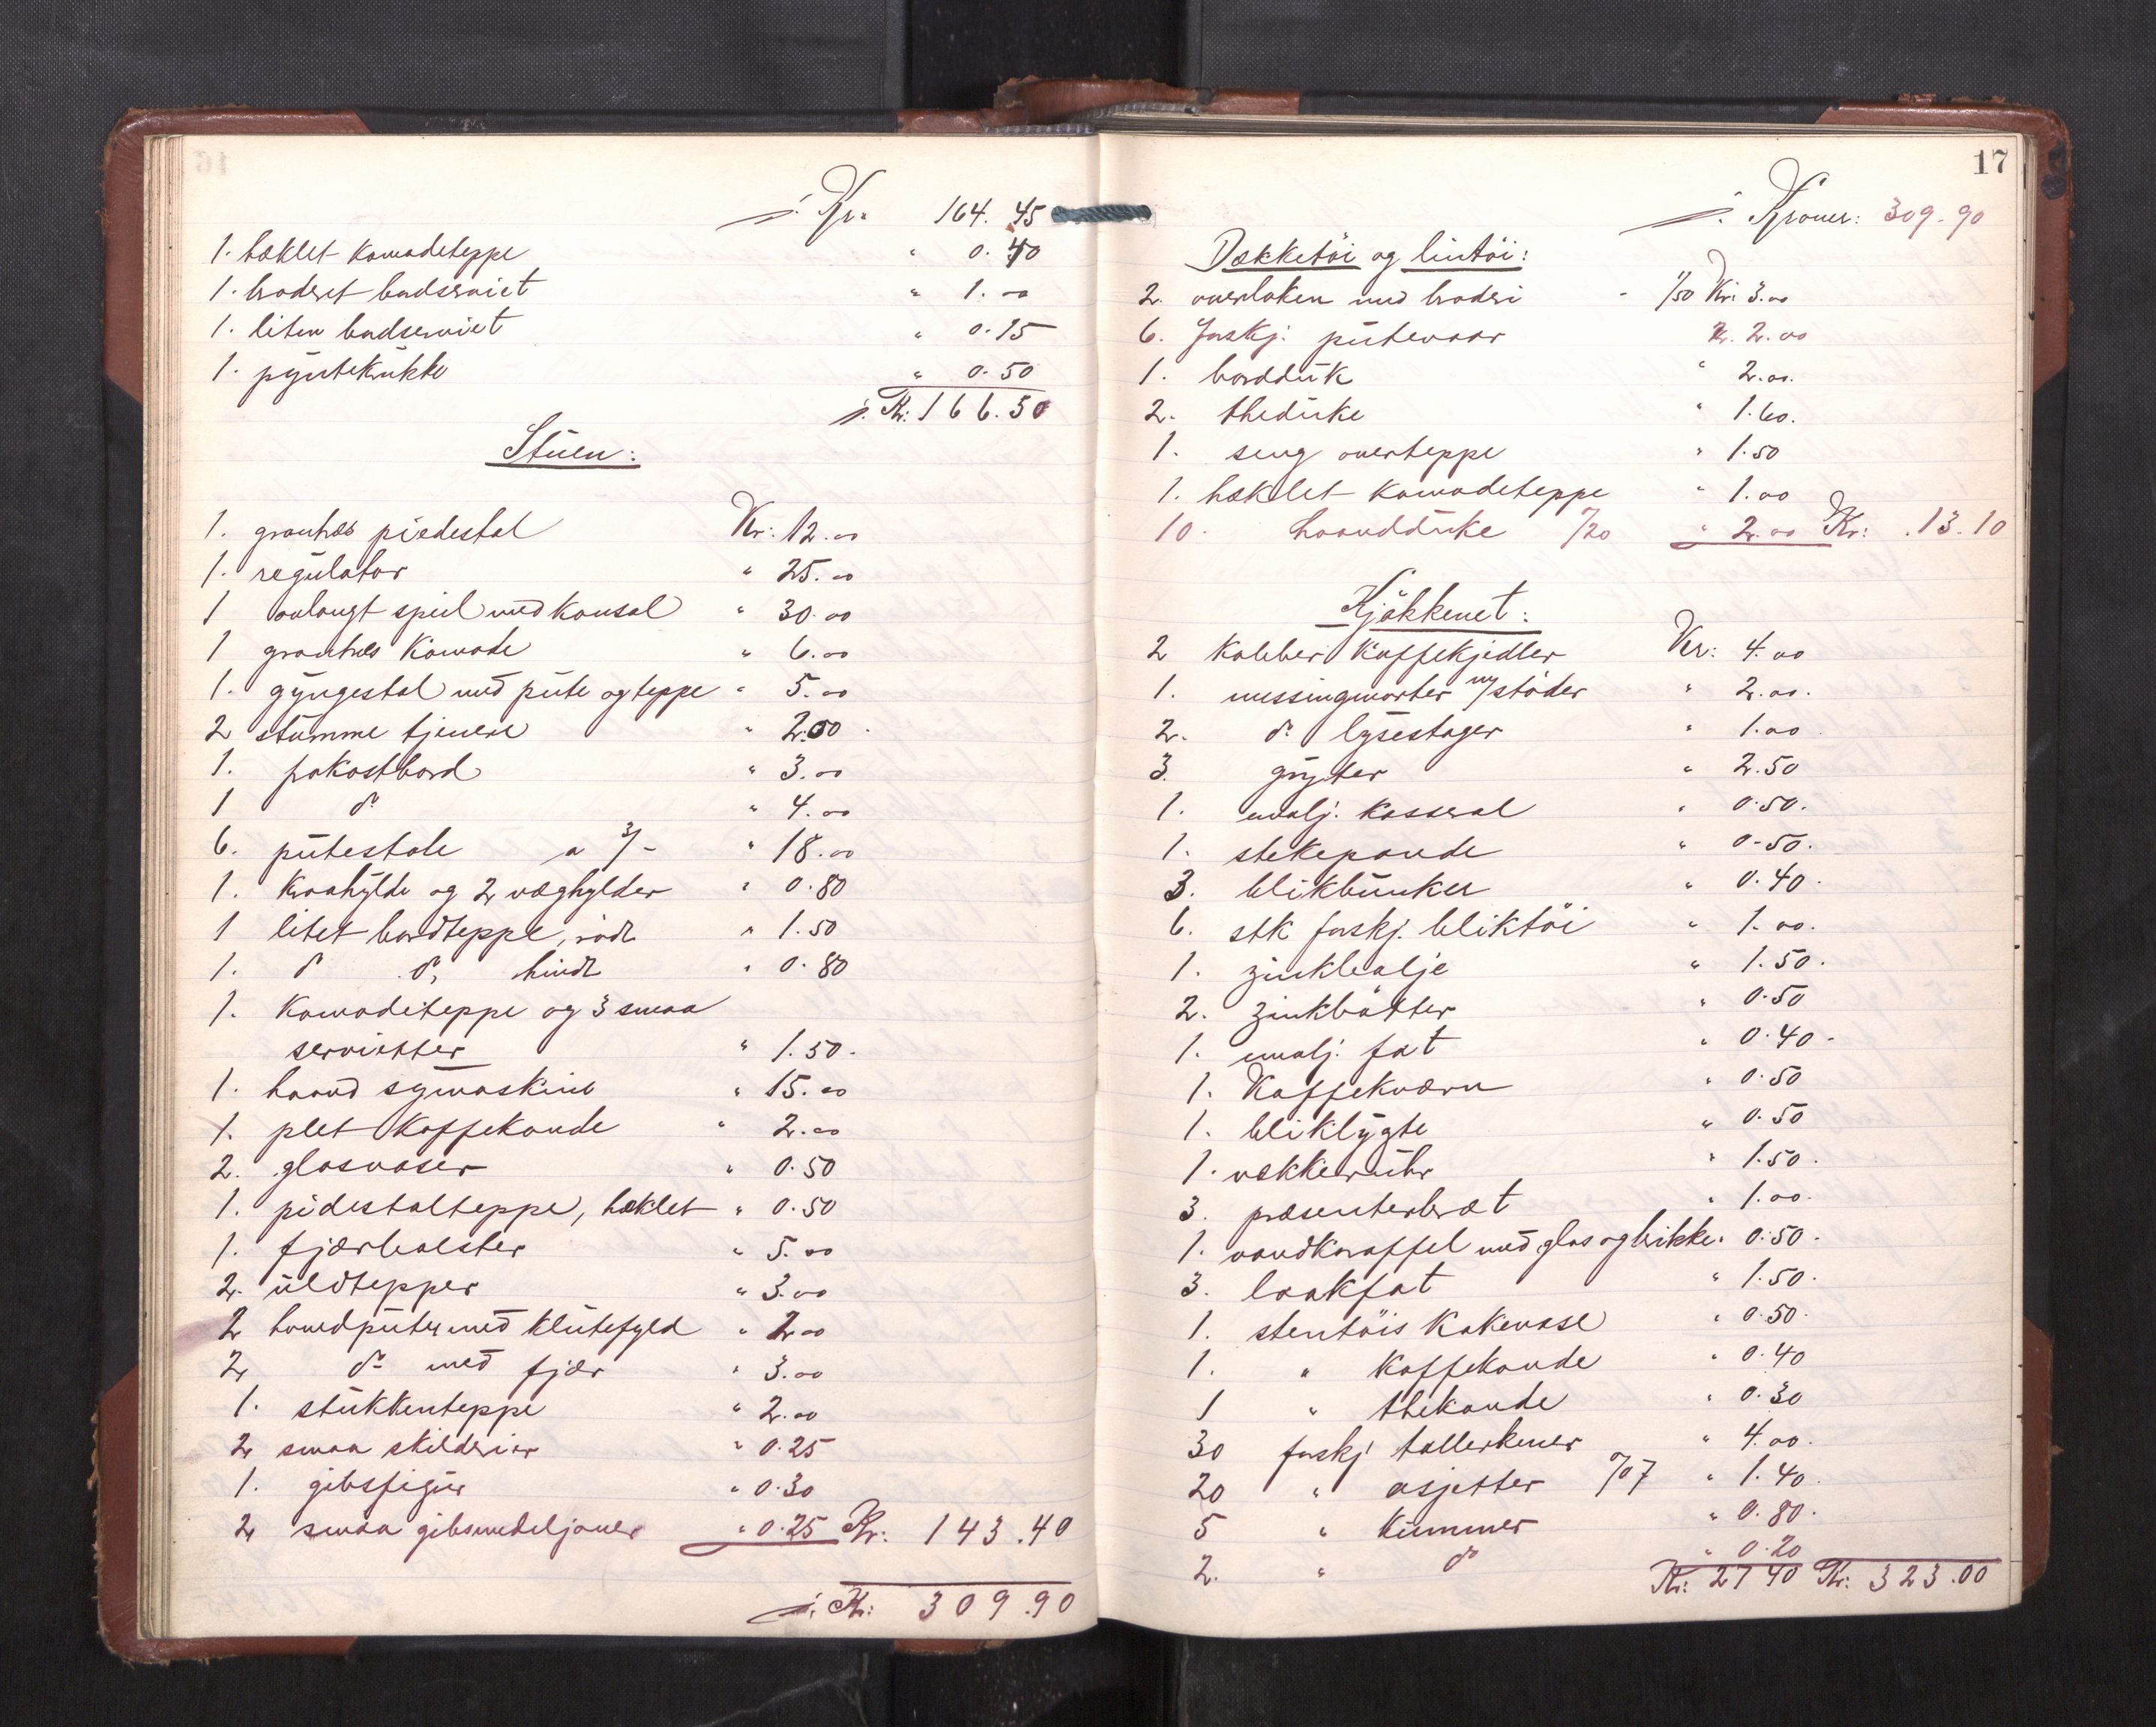 16
÷. Kr. 164.45
1. hæklet komodeteppe " 0.40
1. broderet bordserviet " 1.00
1. liten bordserviet " 0.15
1. pyntekrukke " 0.50
÷. Kr: 166.50
Stuen:
1. grantræs piedestal Kr: 12.00
1. regulator " 25.00
1 avlangt speil med konsol " 30.00
1 grantræs komode " 6.00
1. gyngestol med pute og teppe " 5.00
2 stumme tjenere " 2.50
1. frokostbord " 3.00
1 do " 4.00
6. putestole a 3/- " 18.00
1. kraahylde og 2 væghylder " 0.80
1 litet bordteppe, rødt " 1.50
1. do do, hvidt " 0.80
1. komodeteppe og 3 smaa
servietter " 1.50
1. haand symaskine " 15.00
1. plet kaffekande " 2.00
2. glasvaser " 0.50
1. pidestalteppe, hæklet " 0.50
1. fjærbolster " 5.00
2. uldtepper " 3.00
2 hovedputer med klutefyld " 2.00
2 do med fjær " 3.00
1. stukkenteppe " 2.00
2 smaa skilderier " 0.25
1. gibsfigur " 0.30
2 smaa gibsmedeljoner " 0.25 Kr: 143.40
÷. Kr: 309.90
17
÷. Kroner: 309.90
Dækketöi og lintöi:
2. overlaken med broderi - 1/50 Kr. 3.00
6. forskj. putevaar Kr. 2.00
1. bordduk " 2.00.
2. theduke " 1.60.
1. seng overteppe " 1.50
1. hæklet komodeteppe " 1.00
10. haandduke /20 " 2.00 Kr: 13.10
Kjökkenet:
2 kobber kaffekjedler Kr: 4.00
1. messingmorter m/ støder " 2.00.
2. do lysestager " 1.00
3. gryter " 2.50
1. emalj. kasserol " 0.50.
1. stekepande " 0.50.
3. blikbunker " 0.40.
6. stk forskj. bliktöi " 1.00.
1. zinkbalje " 1.50.
2. zinkbøtter " 0.50
1. emalj. fat " 0.40.
1. kaffekværn " 0.50
1. bliklygte " 0.50
1. vækkeruhr " 1.50.
3. præsenterbræt " 1.00.
1. vandkaraffel med glas og brikke " 0.50.
3. laakfat " 1.50.
1. stentöis kakevase " 0.50.
1. " kaffekande " 0.40
1 " thekande " 0.30
30 forskj tallerkener " 4.00.
20 " asjetter /07 " 1.40.
5 " kummer " 0.80.
2. " do " 0.20
Kr: 27 40 Kr: 323.00